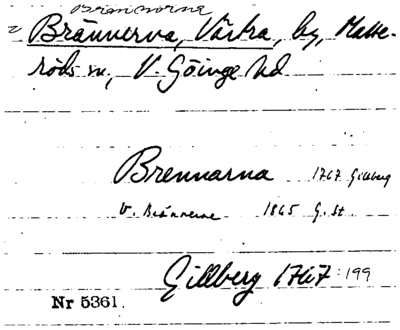 Brännorna
Brännerva, Västra, by, Matte-
röds sn, V. Göinge hd
Brennarna 1767 Gillberg
V. Brännerne 1865 G. st.
Gillberg 1767:199
Nr 5361.